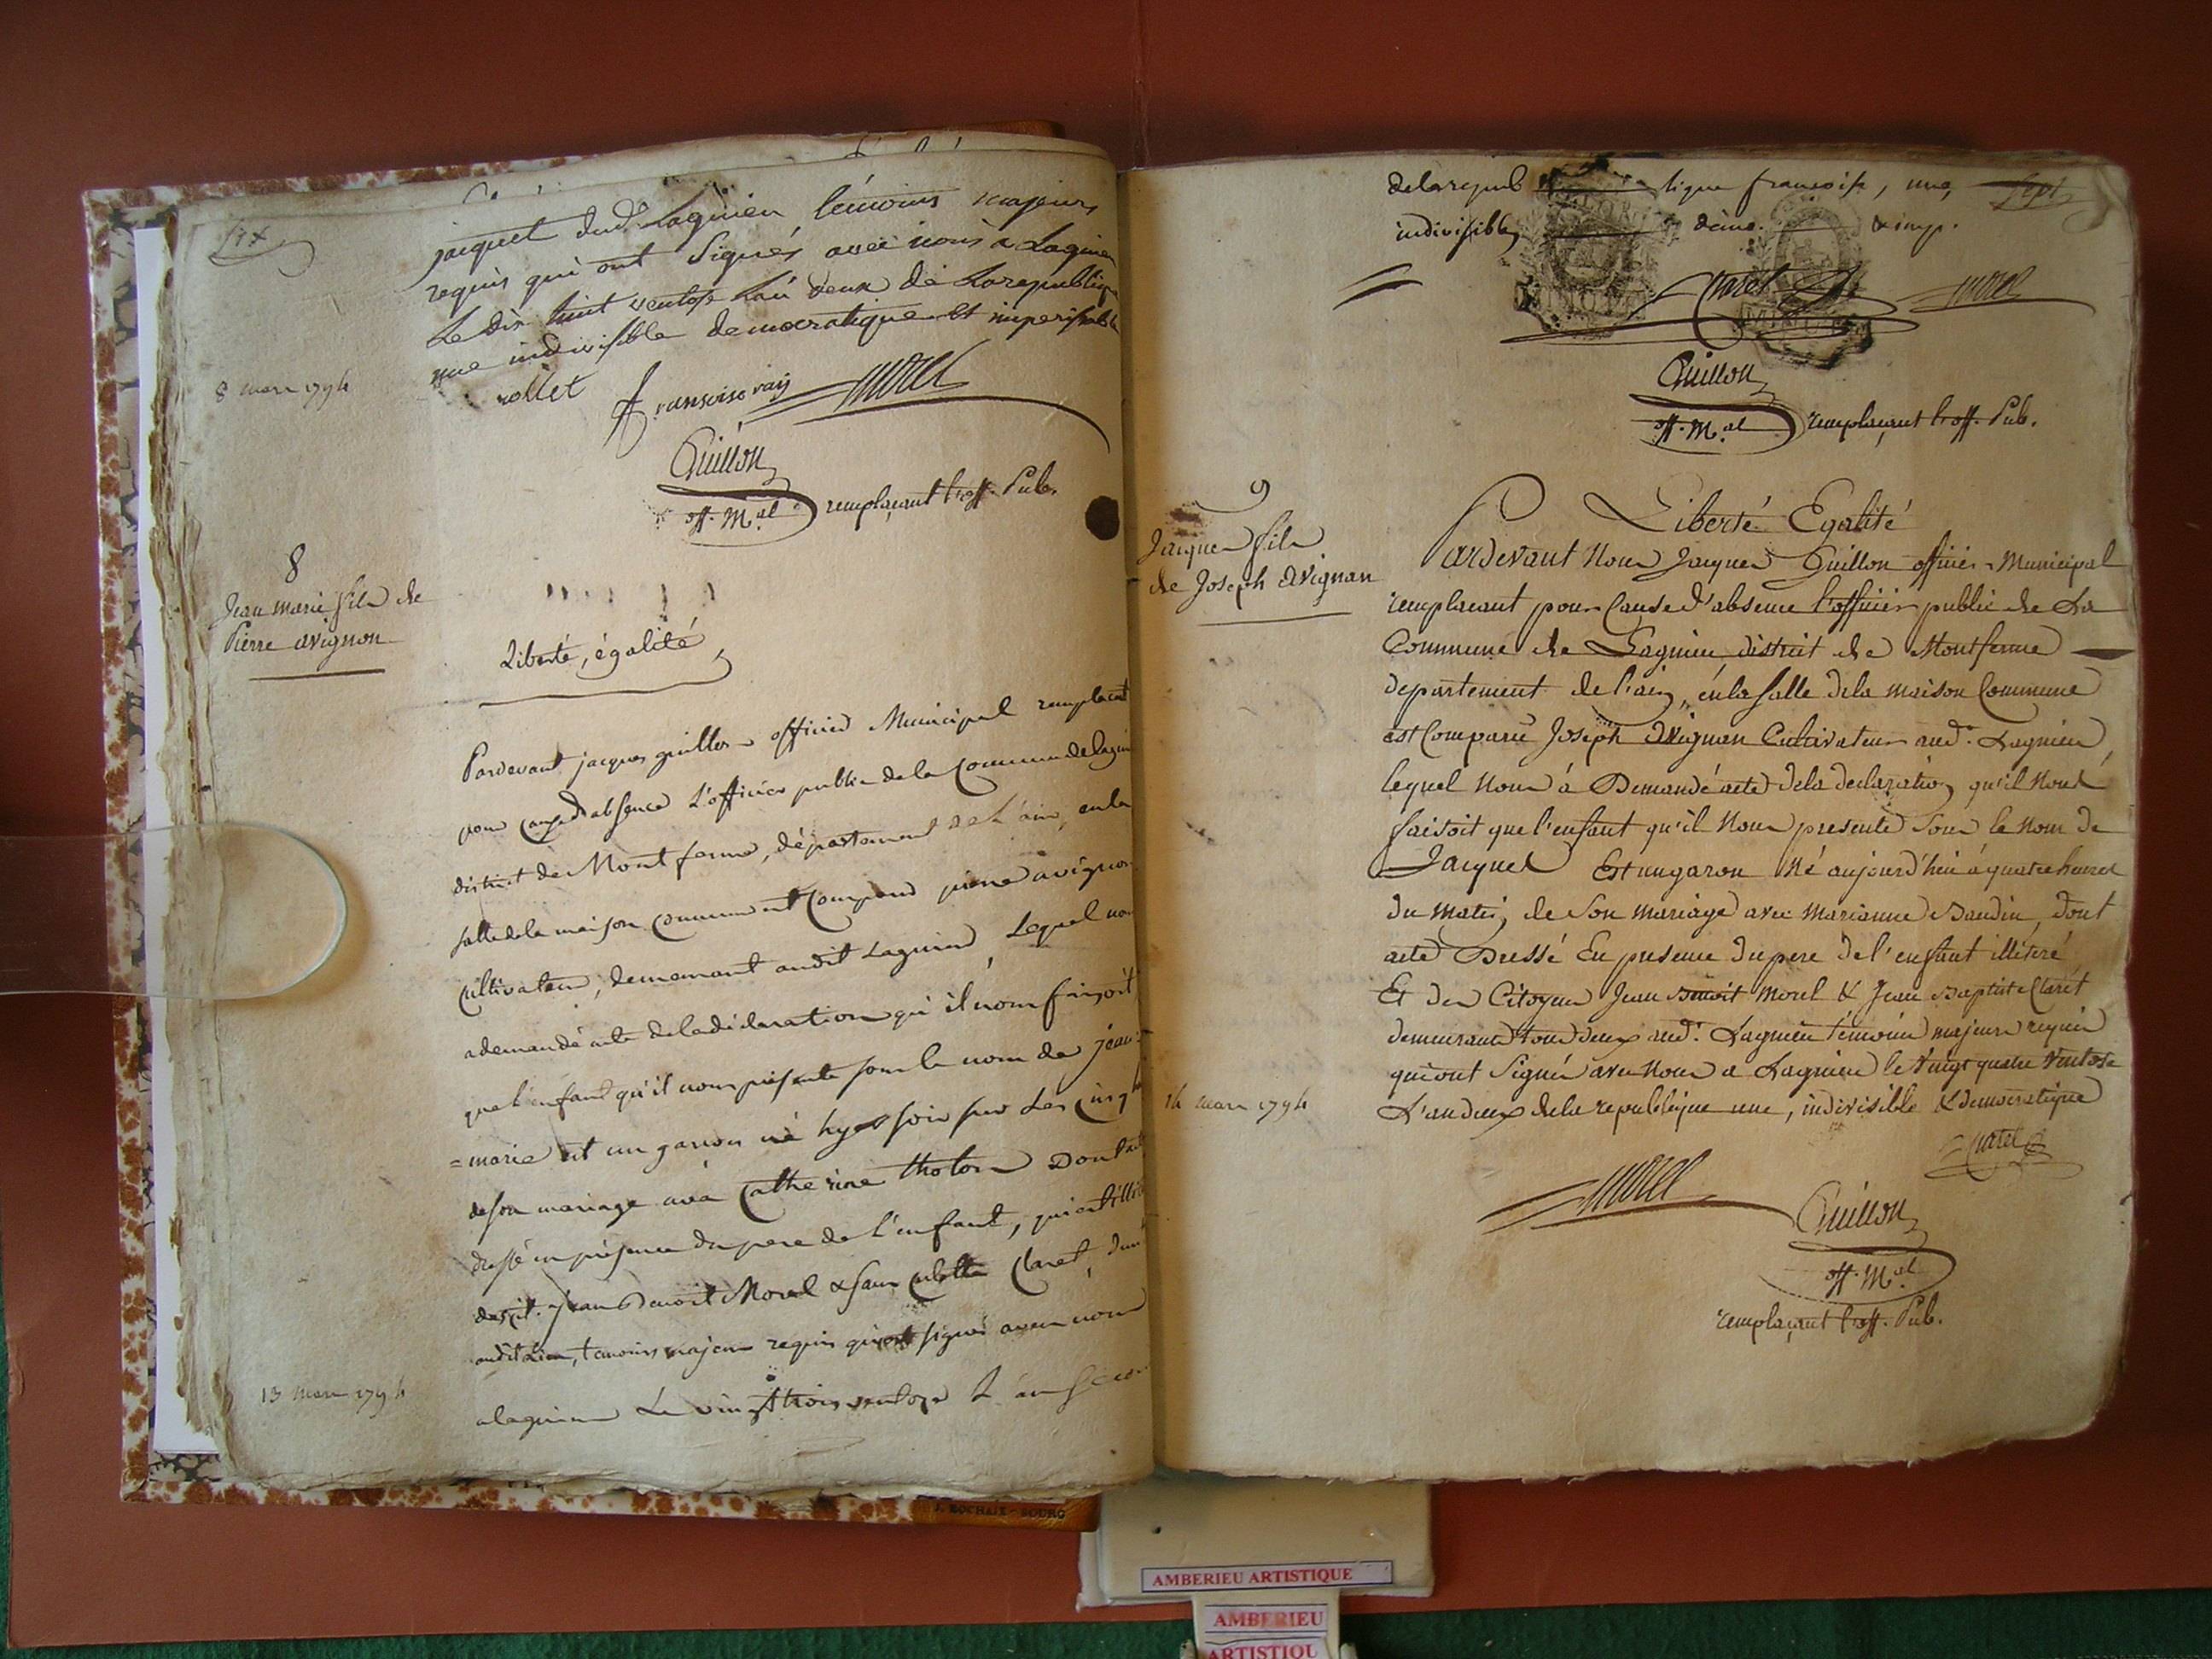 six
jacquet dud. Lagnieu témoins majeurs
requis qui ont signés avec nous a Lagnieu
Le dix huit ventose L'an deux de La republique
une indivisible democratique et imperissable
8 mars 1794
rollet fransoise morel
Guillon
off. M.al remplaçant l'off. Pub.
8
Jean marie fils de
Pierre avignon
Liberté, égalité,
Pardevant jacques guillon officier Municipal remplacant
pour cause d'absence L'officier public de la Commune de lagnieu
district de Montferme, département de L'ain, en la
salle de la maison commune est Comparu pierre avignon
cultivateur, demeurant audit Lagnieu, Lequel nous
a demandé acte de la déclaration qu'il nous faisoit
que l'enfant qu'il nous présente sous le nom de jean =
= marie est un garçon né hyer soir sur Les cinq h
de son mariage avec Catherine tholon Dont acte
dressé en présence du pere de l'enfant, qui est illit
des cit. jean Benoit Morel & sans culotte Claret, dem
audit Lieu, temoins majeurs requis qui ont signés avec nous
a lagnieu Le vingt trois ventose L'an second
13 mars 1794
de la repub lique françoise, une, sept
indivisible, démo. & imp.
Claret morel
Guillon
off. M.al remplaçant l'off. Pub.
9
Jacques fils
de Joseph avignon
Liberté Egalité
Pardevant Nous Jacques Guillon officier Municipal
remplacant pour Cause d'absence l'officier public de La
Commune de Lagnieu district de Montferme
departement de l'ain, en la salle de la maison Commune
est Comparu Joseph avignon Cultivateur aud. Lagnieu,
lequel Nous à Demandé acte de la declaration qu'il Nous
faisoit que l'enfant qu'il Nous presente sous le nom de
Jacques Est un garçon Né aujourd'hui a quatre heures
du matin, de son mariage avec marianne Baudin, dont
acte Dressé En presence du pere de l'enfant illiteré
Et des Citoyens Jean Benoit Morel & Jean Baptiste Claret
demeurants tous deux aud. Lagnieu temoins majeurs requis
qui ont Signés avec Nous a Lagnieu le Vingt quatre Ventose
L'an deux de la republique une, indivisible & democratique
14 mars 1794
Claret
morel
Guillon
off. M.al
remplaçant l'off. Pub.
J. ROCHAIX - BOURG
AMBERIEU ARTISTIQUE
AMBERIEU
ARTISTIQU